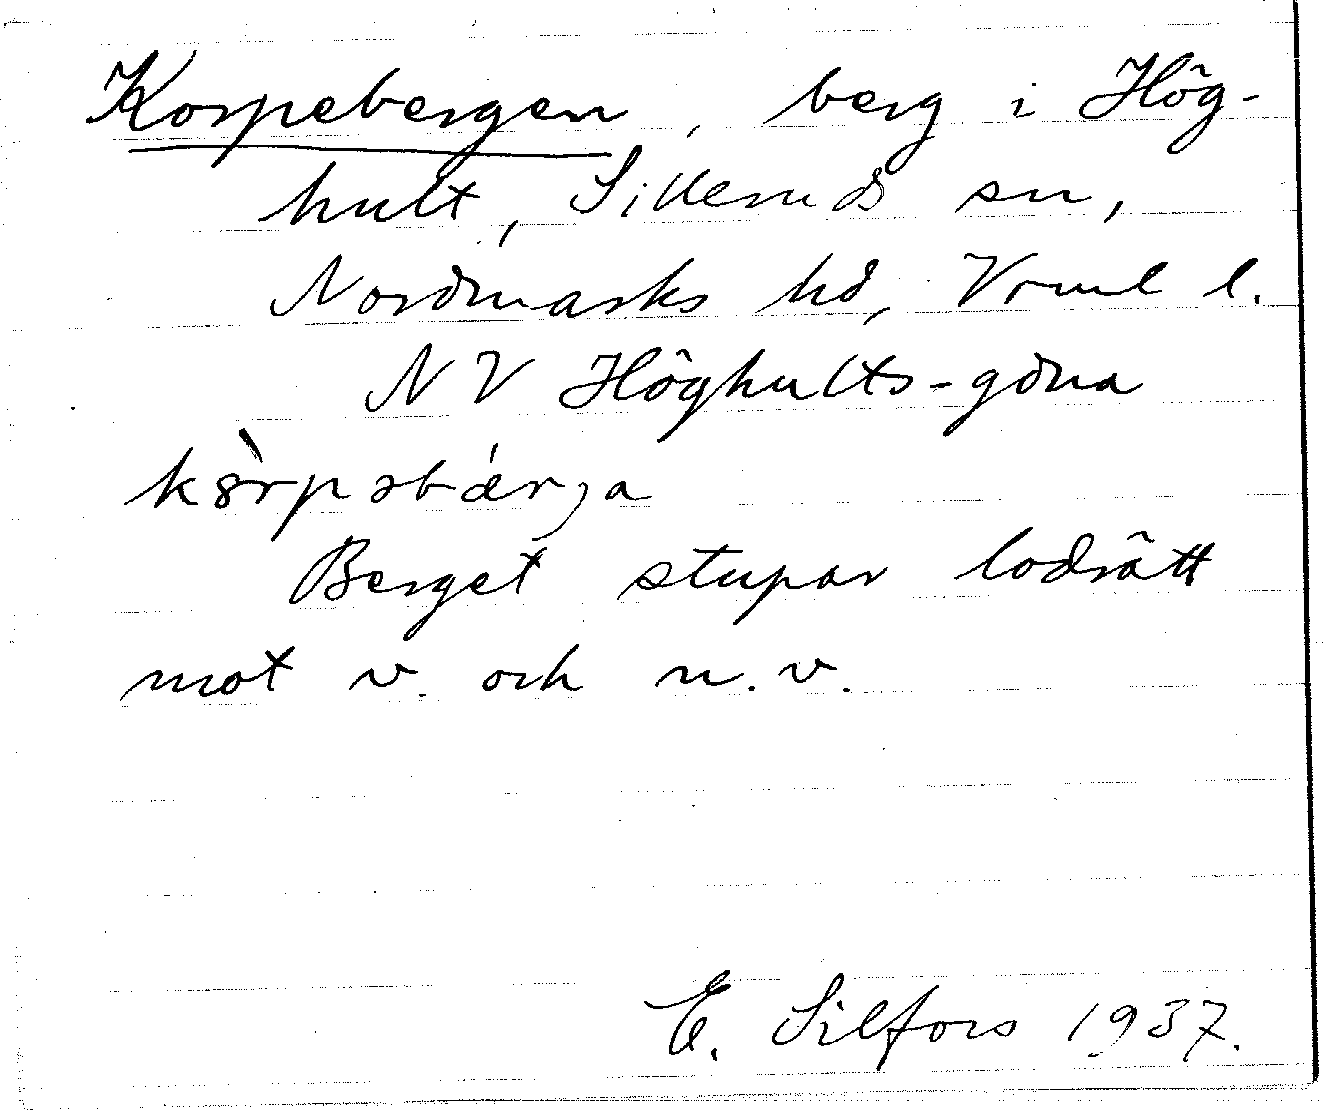 Korpebergen, berg i Hög-
hult, Silleruds sn,
Nordmarks hd, Vrml l.
NV Höghults-gdna
Berget stupar lodrätt
mot v. och n.v.
E. Silfors 1937.